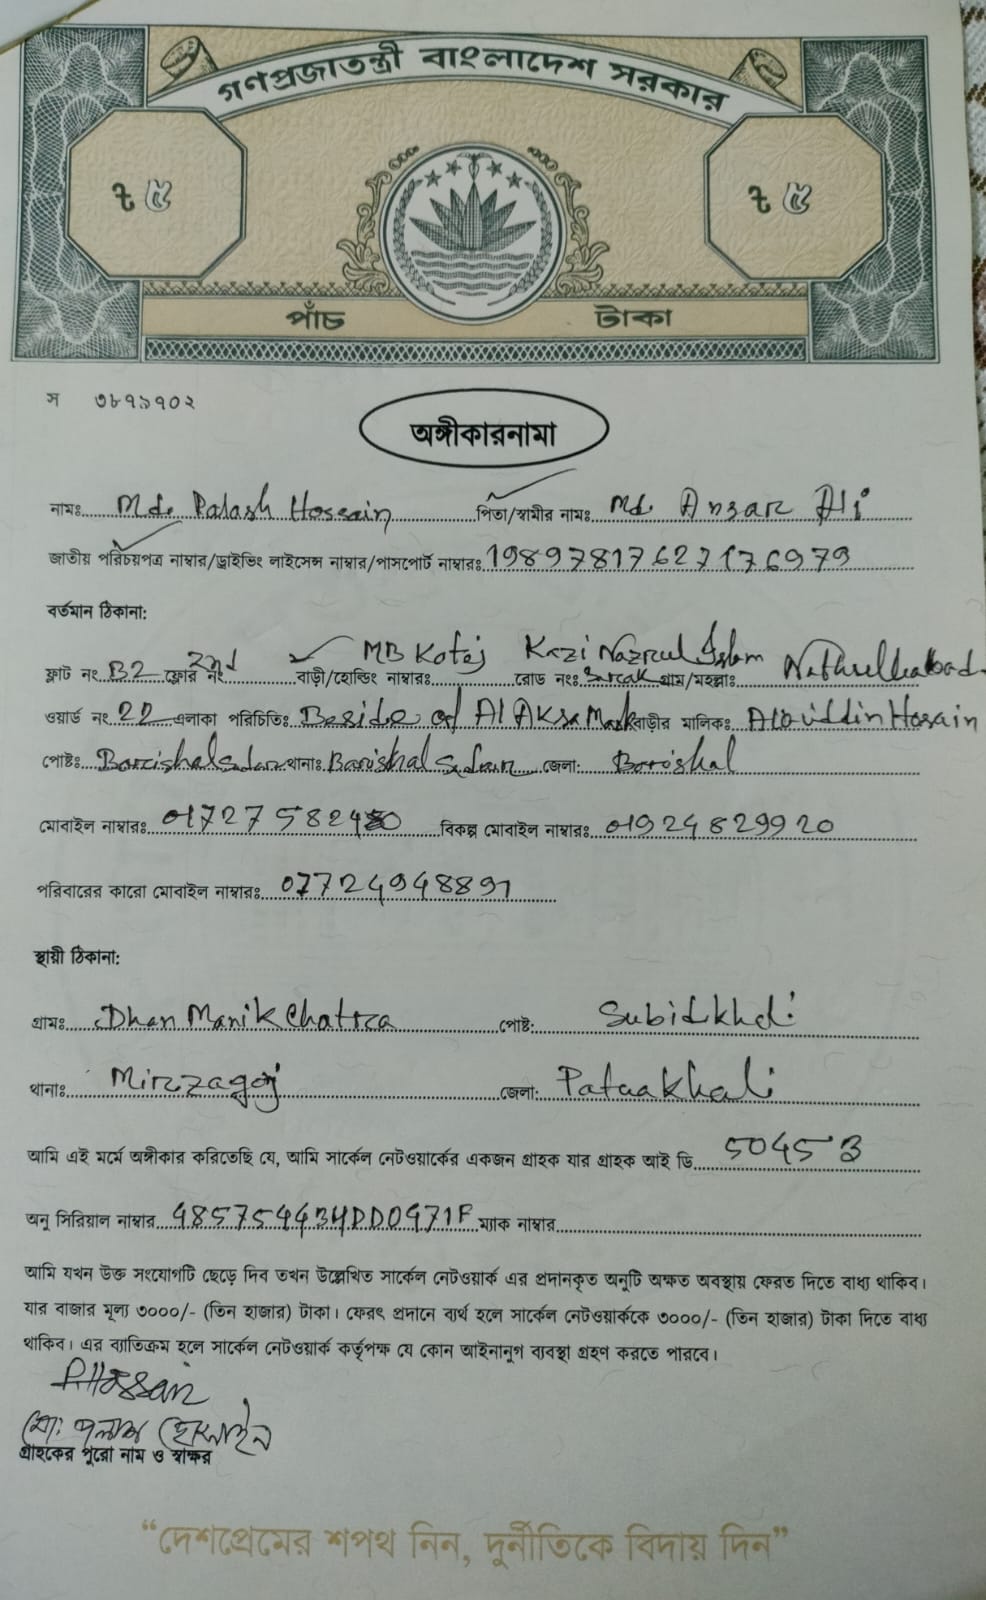 গণপ্রজাতন্ত্রী বাংলাদেশ সরকার
৳ ৫ ৳ ৫
পাঁচ টাকা
স ৩৮৭১৭০২
অঙ্গীকারনামা
নামঃ Md. Palash Hossain পিতা/স্বামীর নামঃ Md. Ansar Ali
জাতীয় পরিচয়পত্র নাম্বার/ড্রাইভিং লাইসেন্স নাম্বার/পাসপোর্ট নাম্বারঃ 19897817627176979
বর্তমান ঠিকানা:
ফ্লাট নং B2 ফ্লোর নং 2nd বাড়ী/হোল্ডিং নাম্বারঃ MB Kotej রোড নংঃ Kazi Nazrul Islam Sarak গ্রাম/মহল্লাঃ
ওয়ার্ড নং 22 এলাকা পরিচিতিঃ Beside of Al Aksa বাড়ীর মালিকঃ Alauddin Hosain
পোষ্টঃ Barishal Sadar থানাঃ Barishal Sadar জেলা: Barishal
মোবাইল নাম্বারঃ বিকল্প মোবাইল নাম্বারঃ 01924829920
পরিবারের কারো মোবাইল নাম্বারঃ
স্থায়ী ঠিকানা:
গ্রামঃ Dhan Manik Chatra পোষ্ট: Subidkhali
থানাঃ Mirzagonj জেলা: Patuakhali
আমি এই মর্মে অঙ্গীকার করিতেছি যে, আমি সার্কেল নেটওয়ার্কের একজন গ্রাহক যার গ্রাহক আই ডি 50453
অনু সিরিয়াল নাম্বার 485754434DD0471F ম্যাক নাম্বার
আমি যখন উক্ত সংযোগটি ছেড়ে দিব তখন উল্লেখিত সার্কেল নেটওয়ার্ক এর প্রদানকৃত অনুটি অক্ষত অবস্থায় ফেরত দিতে বাধ্য থাকিব।
যার বাজার মূল্য ৩০০০/- (তিন হাজার) টাকা। ফেরৎ প্রদানে ব্যর্থ হলে সার্কেল নেটওয়ার্ককে ৩০০০/- (তিন হাজার) টাকা দিতে বাধ্য
থাকিব। এর ব্যাতিক্রম হলে সার্কেল নেটওয়ার্ক কর্তৃপক্ষ যে কোন আইনানুগ ব্যবস্থা গ্রহণ করতে পারবে।
P.Hossain
মো: পলাশ হোসাইন
গ্রাহকের পুরো নাম ও স্বাক্ষর
“দেশপ্রেমের শপথ নিন, দুর্নীতিকে বিদায় দিন”